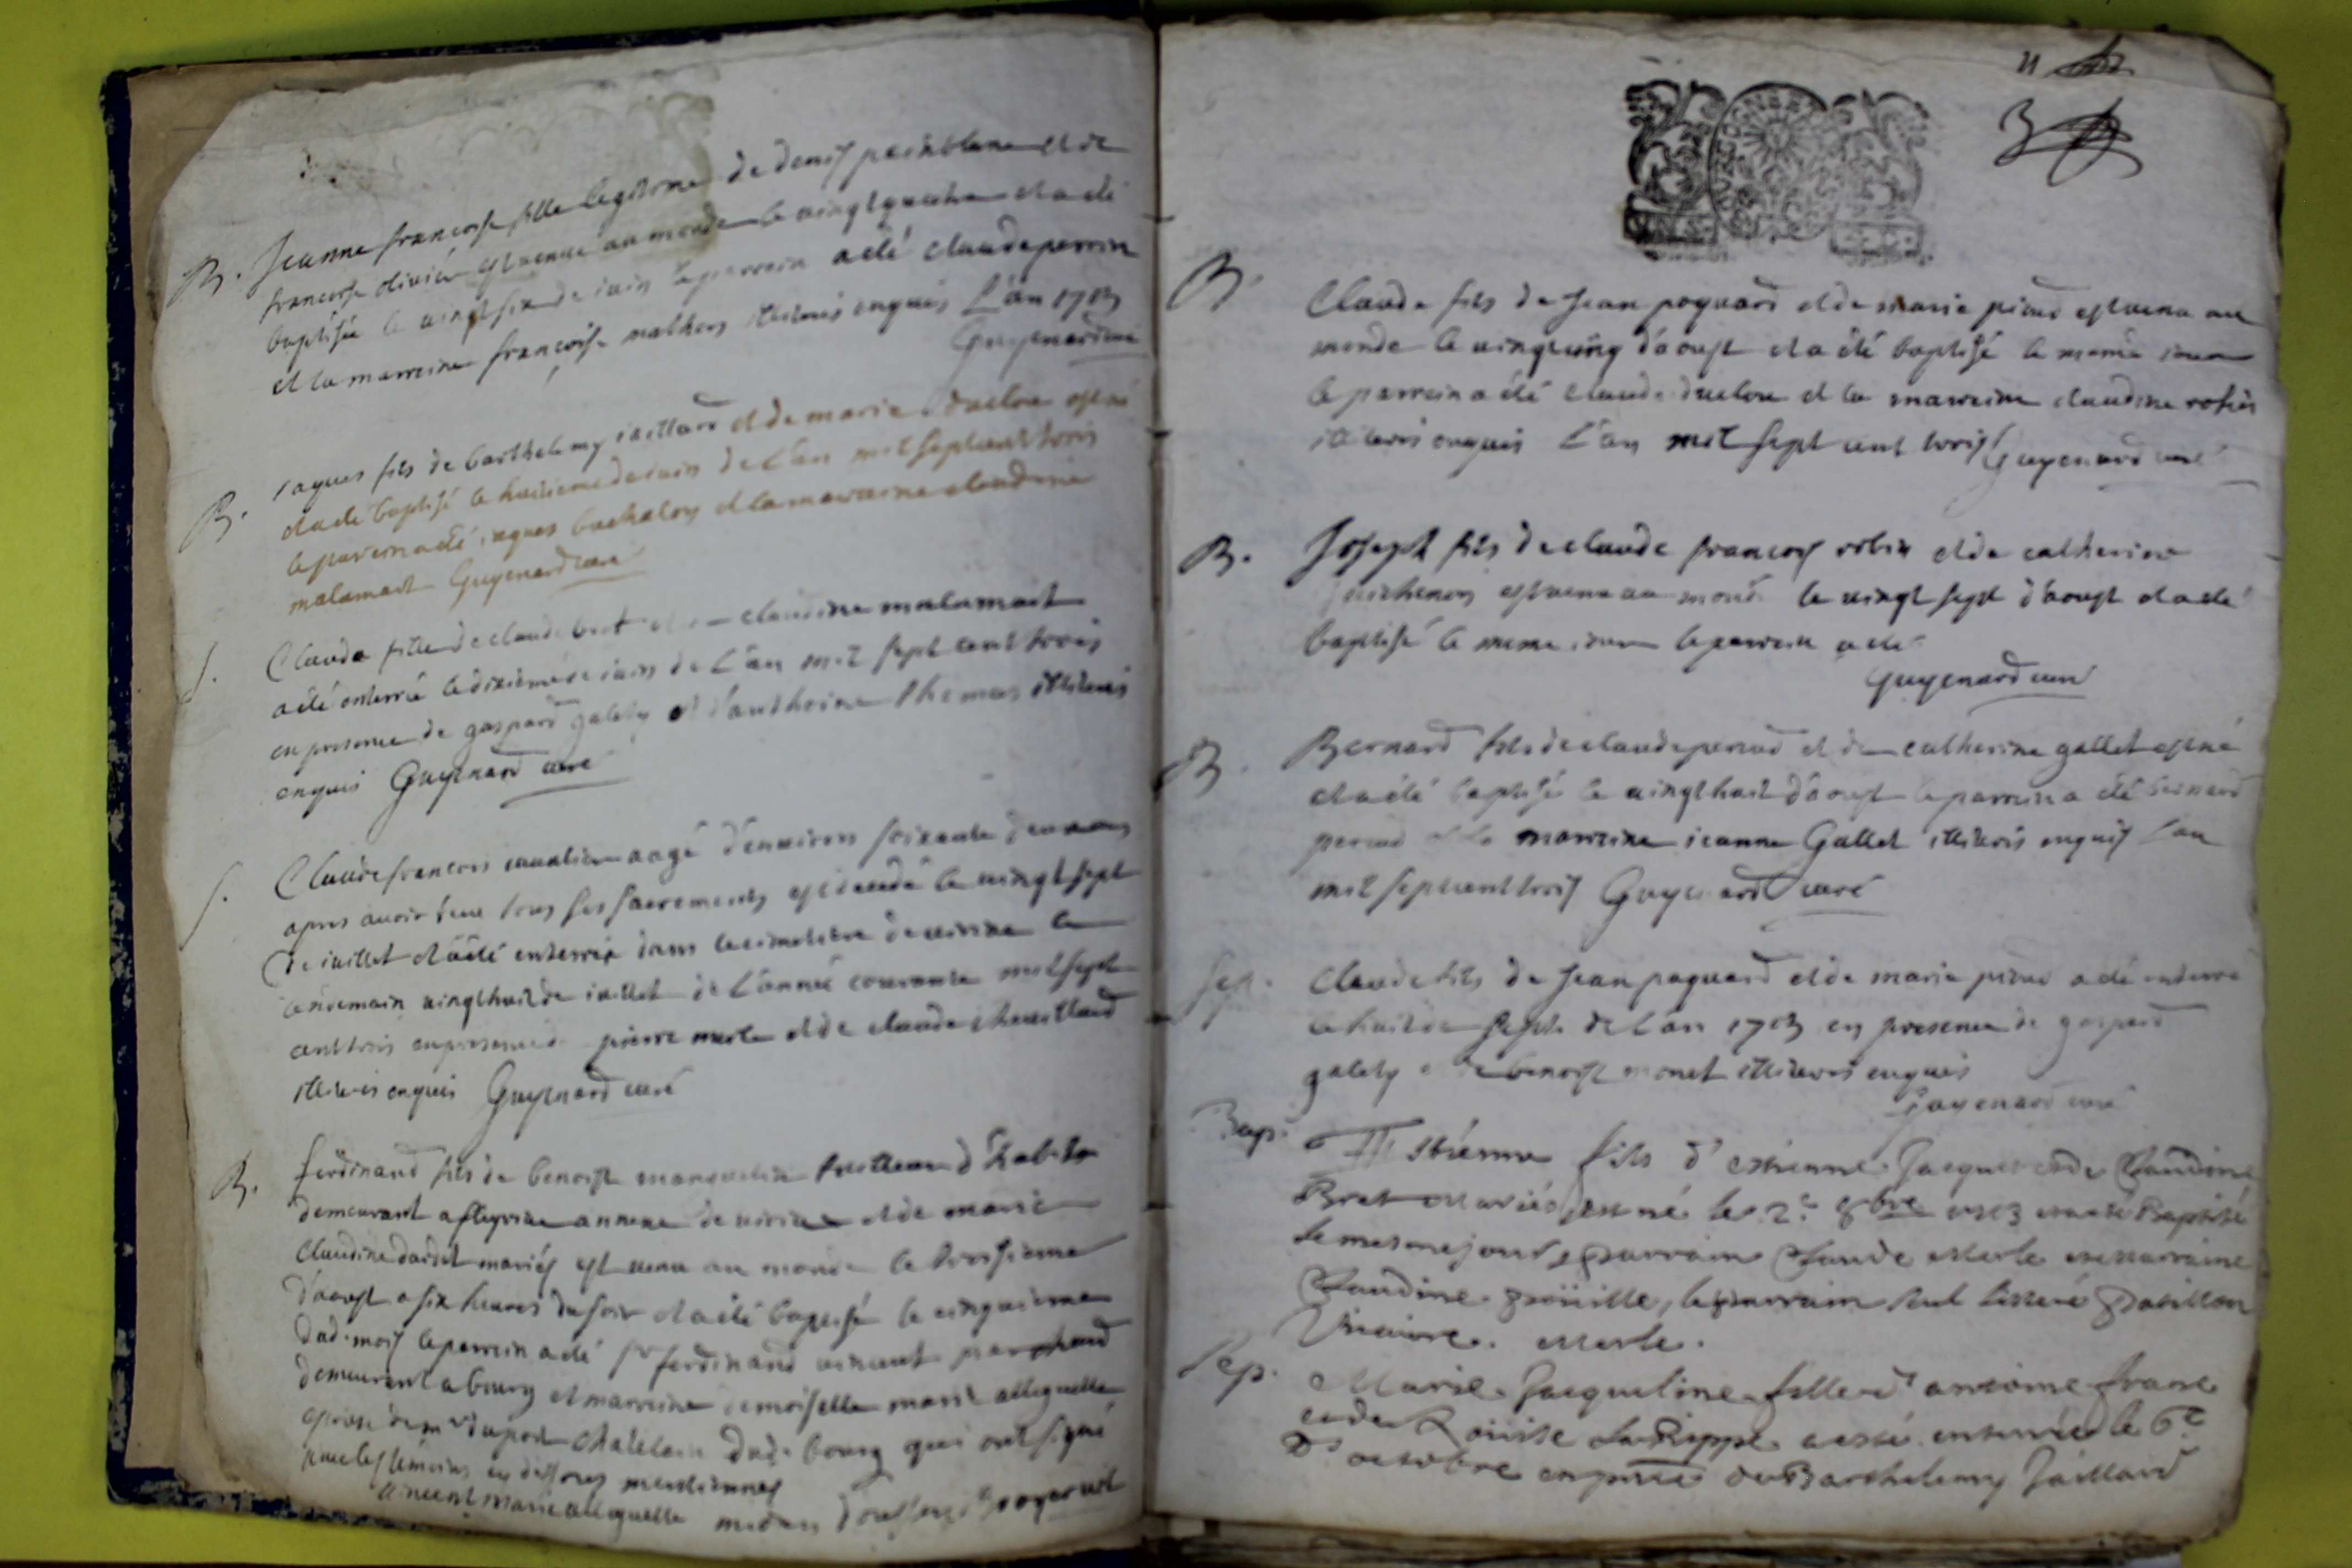 B. Jeanne francoise fille legitime de denis peinblanc et de
francoise olivier est venue au monde le vingtquatre et a été
baptisée le vingt six de iuin le parrein a été claude perrin
et la marreine francoise mathieu illiterés enquis L'an 1703
Guyenard curé
B. iaques fils de barthelemy iaillard et de marie duclou est né
et a été baptisé le huitieme de iuin de L'an mil sept cent trois
le parrein a été iaques bachalon et la marreine claudine
malamait Guyenard curé
S. Claude fille de claude bret et de claudine malamait
a été enterrée le dixieme de iuin de L'an mil sept cent trois
en presence de gaspard galety et d'anthoine thomas illiterés
enquis Guyenard curé
S. Claude francois cavalier aagé d'environ soixante deux ans
apres avoir receu tous ses sacrements est decedé le vingt sept
de iuillet et a été enterré dans le cimetiere de
lendemain vingthuit de iuillet de L'année courante mil sept
cent trois en presence de pierre merle et de claude chevilland
illiterés enquis Guyenard curé
B. ferdinand fils de benoist tailleur d'habits
demeurant a annexe de et de marie
claudine dardet mariés est venu au monde le troisieme
d'aoust a six heures du soir et a été baptisé le cinquieme
dud. mois le parrein a été sr ferdinand vincent marchand
demeurant a bourg et marreine demoiselle marie alleguelle
epouse de mr dupont chatelain dud. bourg qui ont signé
avec les témoins cy dessous mentionnés
vincent marie alleguelle
11
3
B. Claude fils de Jean poquard et de marie picud est venu au
monde le vingt cinq d'aoust et a été baptisé le meme iour
le parrein a été claude duclou et la marreine claudine
illiterés enquis L'an mil sept cent trois Guyenard curé
B. Joseph fils de claude francois robin et de catherine
guichenon est venu au monde le vingt sept d'aoust et a été
baptisé le meme iour le parrein a été
Guyenard curé
B. Bernard fils de claude perrud et de catherine gallet est né
et a été baptisé le vingthuit d'aoust le parrein a été bernard
perrud et la marreine ieanne Gallet illiterés enquis l'an
mil sept cent trois Guyenard curé
Sep. Claude fils de Jean poquard et de marie picud a été enterré
le huit de Septe. de L'an 1703 en presence de gaspard
galety et de benoist monet illiterés enquis
Guyenard curé
Bap. Estienne fils d'estienne Jacquet et de Claudine
Bret mariés est né le 2.e 8bre 1703 et a esté Baptisé
le mesme jour, parrain Claude Merle et marraine
Claudine, le parrain seul lisseré Pavillon
Vicaire. Merle.
Sep. Marie Jacqueline fille d'antoine franc
et de Louise La Rippe a esté enterrée le 6.e
D'octobre en pnce de Barthelemy Jaillard